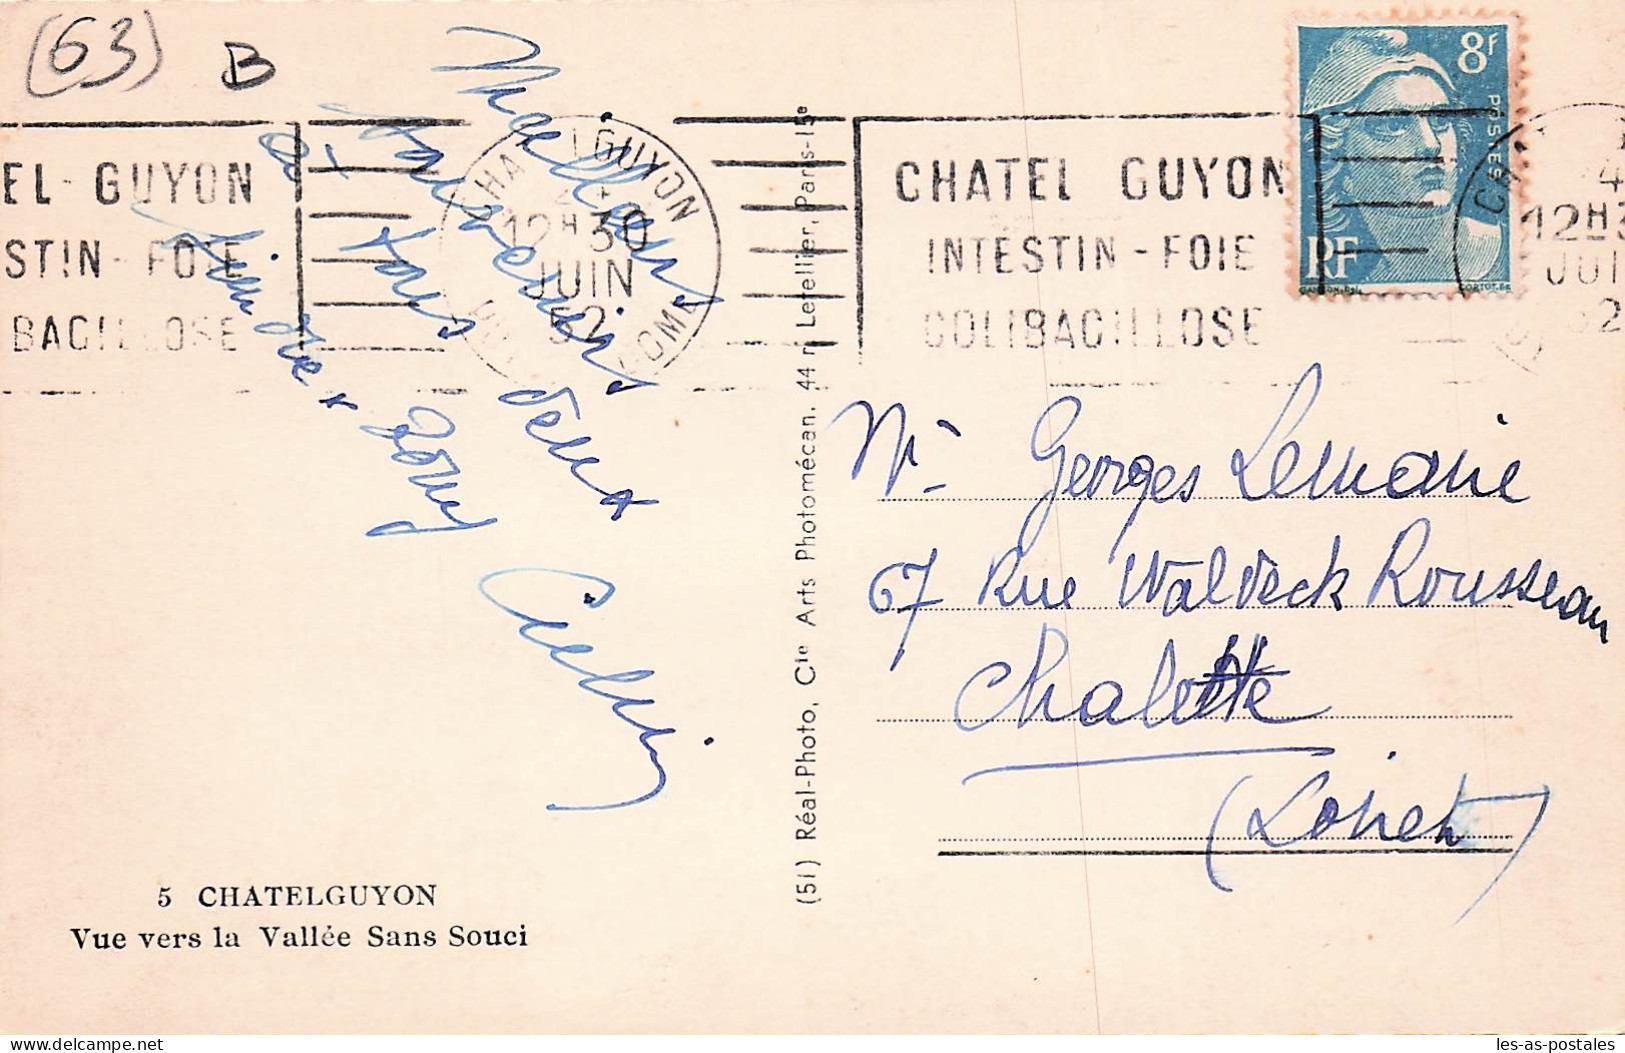 (63) B
Meilleurs
souvenirs
à tous deux
et
bien
CHATELGUYON
12H30
JUIN
52
PUY DOME
EL-GUYON
STIN-FOIE
BACILLOSE
CHATEL GUYON
INTESTIN-FOIE
COLIBACILLOSE
8F
POSTES
RF
GANDON-DEL.
CORTOT.SC
12H3
JUI
52
(51) Réal-Photo, Cte Arts Photomécan. 44 r. Letellier, Paris-15e
Mr Georges Lemaire
67 Rue Waldeck Rousseau
Chalette
(Loiret)
5 CHATELGUYON
Vue vers la Vallée Sans Souci
les-as-postales